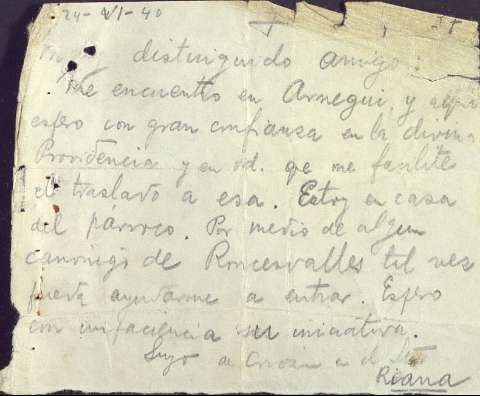 24-VI-40
distinguido amigo:
Me encuentro en Arnegui, y aquí
espero con gran confianza en la divina
Providencia y en vd. que me facilite
el traslado a esa. Estoy en casa
del parroco. Por medio de algun
canonigo de Roncesvalles tal vez
pueda ayudarme a entrar. Espero
con impaciencia su iniciativa.
Suyo de Corazon en el
Riana